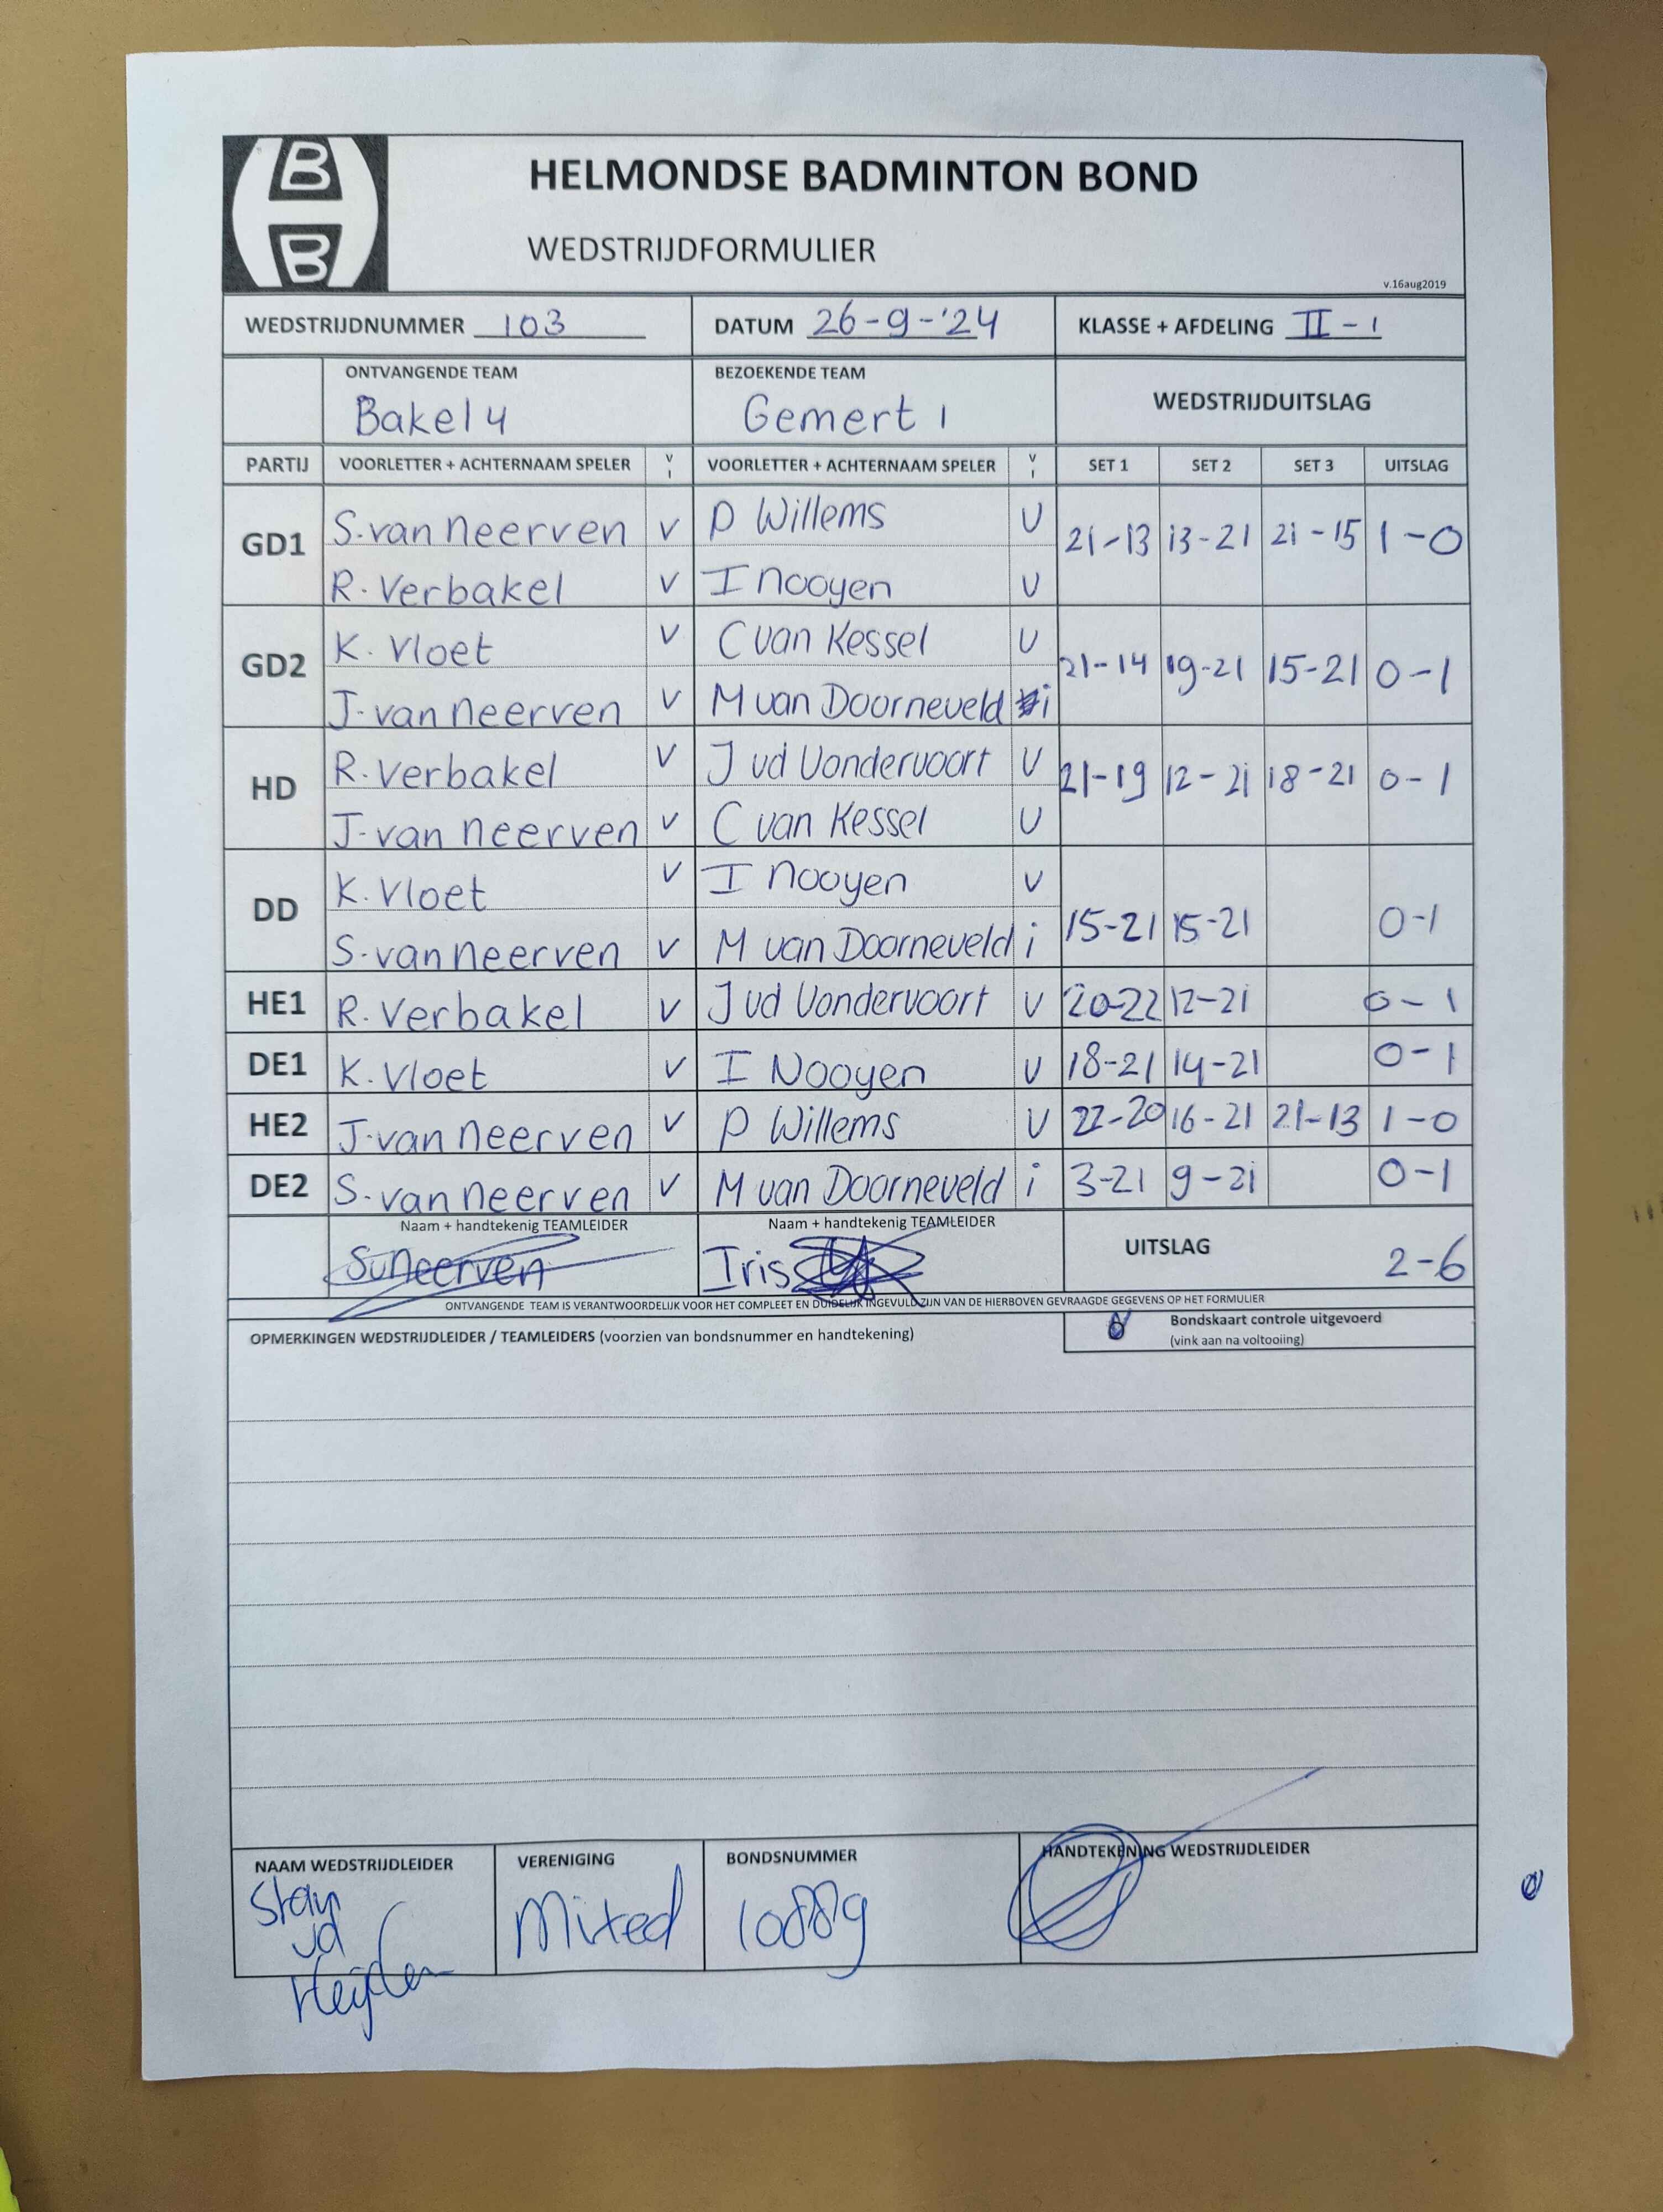 B
B
HELMONDSE BADMINTON BOND
WEDSTRIJDFORMULIER
v.16aug2019
WEDSTRIJDNUMMER 103 DATUM 26-9-'24 KLASSE + AFDELING II-1
ONTVANGENDE TEAM BEZOEKENDE TEAM WEDSTRIJDUITSLAG
Bakel 4 Gemert 1
PARTIJ VOORLETTER + ACHTERNAAM SPELER V I VOORLETTER + ACHTERNAAM SPELER V I SET 1 SET 2 SET 3 UITSLAG
GD1 S. van Neerven V P Willems V 21-13 13-21 21-15 1-0
R. Verbakel V I Nooyen V
GD2 K. Vloet V C van Kessel V 21-14 19-21 15-21 0-1
J. van Neerven V M van Doorneveld i
HD R. Verbakel V J vd Vondervoort V 21-19 12-21 18-21 0-1
J. van Neerven V C van Kessel V
DD K. Vloet V I Nooyen V 15-21 15-21 0-1
S. van Neerven V M van Doorneveld i
HE1 R. Verbakel V J vd Vondervoort V 20-22 12-21 0-1
DE1 K. Vloet V I Nooyen V 18-21 14-21 0-1
HE2 J. van Neerven V P Willems V 22-20 16-21 21-13 1-0
DE2 S. van Neerven V M van Doorneveld i 3-21 9-21 0-1
Naam + handtekenig TEAMLEIDER Naam + handtekenig TEAMLEIDER
SvNeerven Iris UITSLAG 2-6
ONTVANGENDE TEAM IS VERANTWOORDELIJK VOOR HET COMPLEET EN DUIDELIJK INGEVULD ZIJN VAN DE HIERBOVEN GEVRAAGDE GEGEVENS OP HET FORMULIER
OPMERKINGEN WEDSTRIJDLEIDER / TEAMLEIDERS (voorzien van bondsnummer en handtekening)
Bondskaart controle uitgevoerd
(vink aan na voltooiing)
NAAM WEDSTRIJDLEIDER VERENIGING BONDSNUMMER HANDTEKENING WEDSTRIJDLEIDER
Stan
vd
Heijden
Mixed
10889